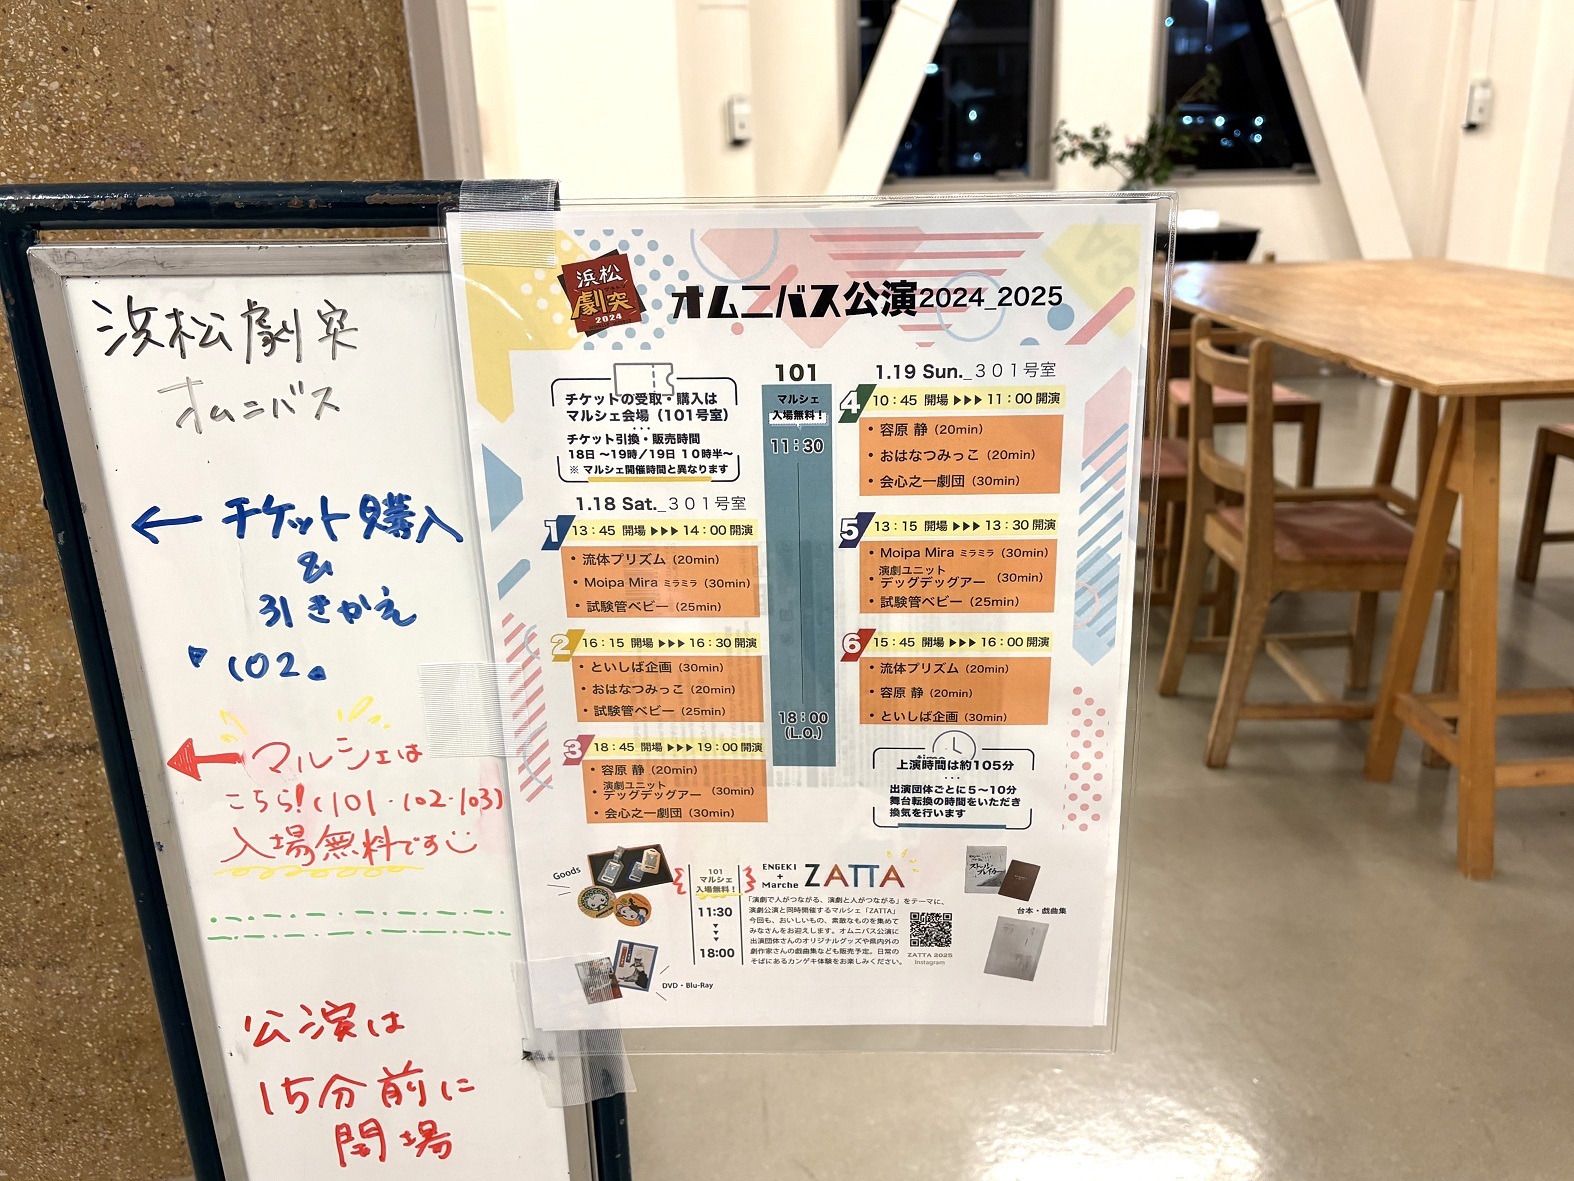 浜松劇突
オムニバス
← チケット購入
&
引きかえ
102。
マルシェは
こちら!(101・102・103)
入場無料です
公演は
15分前に
開場
浜松
劇突
2024
オムニバス公演2024_2025
チケットの受取・購入は
マルシェ会場（101号室）
・・・
チケット引換・販売時間
18日 〜19時／19日 10時半〜
※ マルシェ開催時間と異なります
1.18 Sat._３０１号室
1 13：45 開場 ▸▸▸ 14：00 開演
・流体プリズム（20min）
・Moipa Mira ミラミラ（30min）
・試験管ベビー（25min）
2 16：15 開場 ▸▸▸ 16：30 開演
・といしば企画（30min）
・おはなつみっこ（20min）
・試験管ベビー（25min）
3 18：45 開場 ▸▸▸ 19：00 開演
・容原 静（20min）
・演劇ユニット
デッグデッグアー（30min）
・会心之一劇団（30min）
101
マルシェ
入場無料！
11：30
18：00
(L.O.)
1.19 Sun._３０１号室
4 10：45 開場 ▸▸▸ 11：00 開演
・容原 静（20min）
・おはなつみっこ（20min）
・会心之一劇団（30min）
5 13：15 開場 ▸▸▸ 13：30 開演
・Moipa Mira ミラミラ（30min）
・演劇ユニット
デッグデッグアー（30min）
・試験管ベビー（25min）
6 15：45 開場 ▸▸▸ 16：00 開演
・流体プリズム（20min）
・容原 静（20min）
・といしば企画（30min）
上演時間は約105分
・・・
出演団体ごとに５〜10分
舞台転換の時間をいただき
換気を行います
Goods
DVD・Blu-Ray
101
マルシェ
入場無料！
11:30
18:00
ENGEKI
+
Marche
ZATTA
「演劇で人がつながる、演劇と人がつながる」をテーマに、
演劇公演と同時開催するマルシェ「ZATTA」
今回も、おいしいもの、素敵なものを集めて
みなさんをお迎えします。オムニバス公演に
出演団体さんのオリジナルグッズや県内外の
劇作家さんの戯曲集なども販売予定。日常の
そばにあるカンゲキ体験をお楽しみください。
ZATTA 2025
Instagram
ストール・
ブレイカー
台本・戯曲集